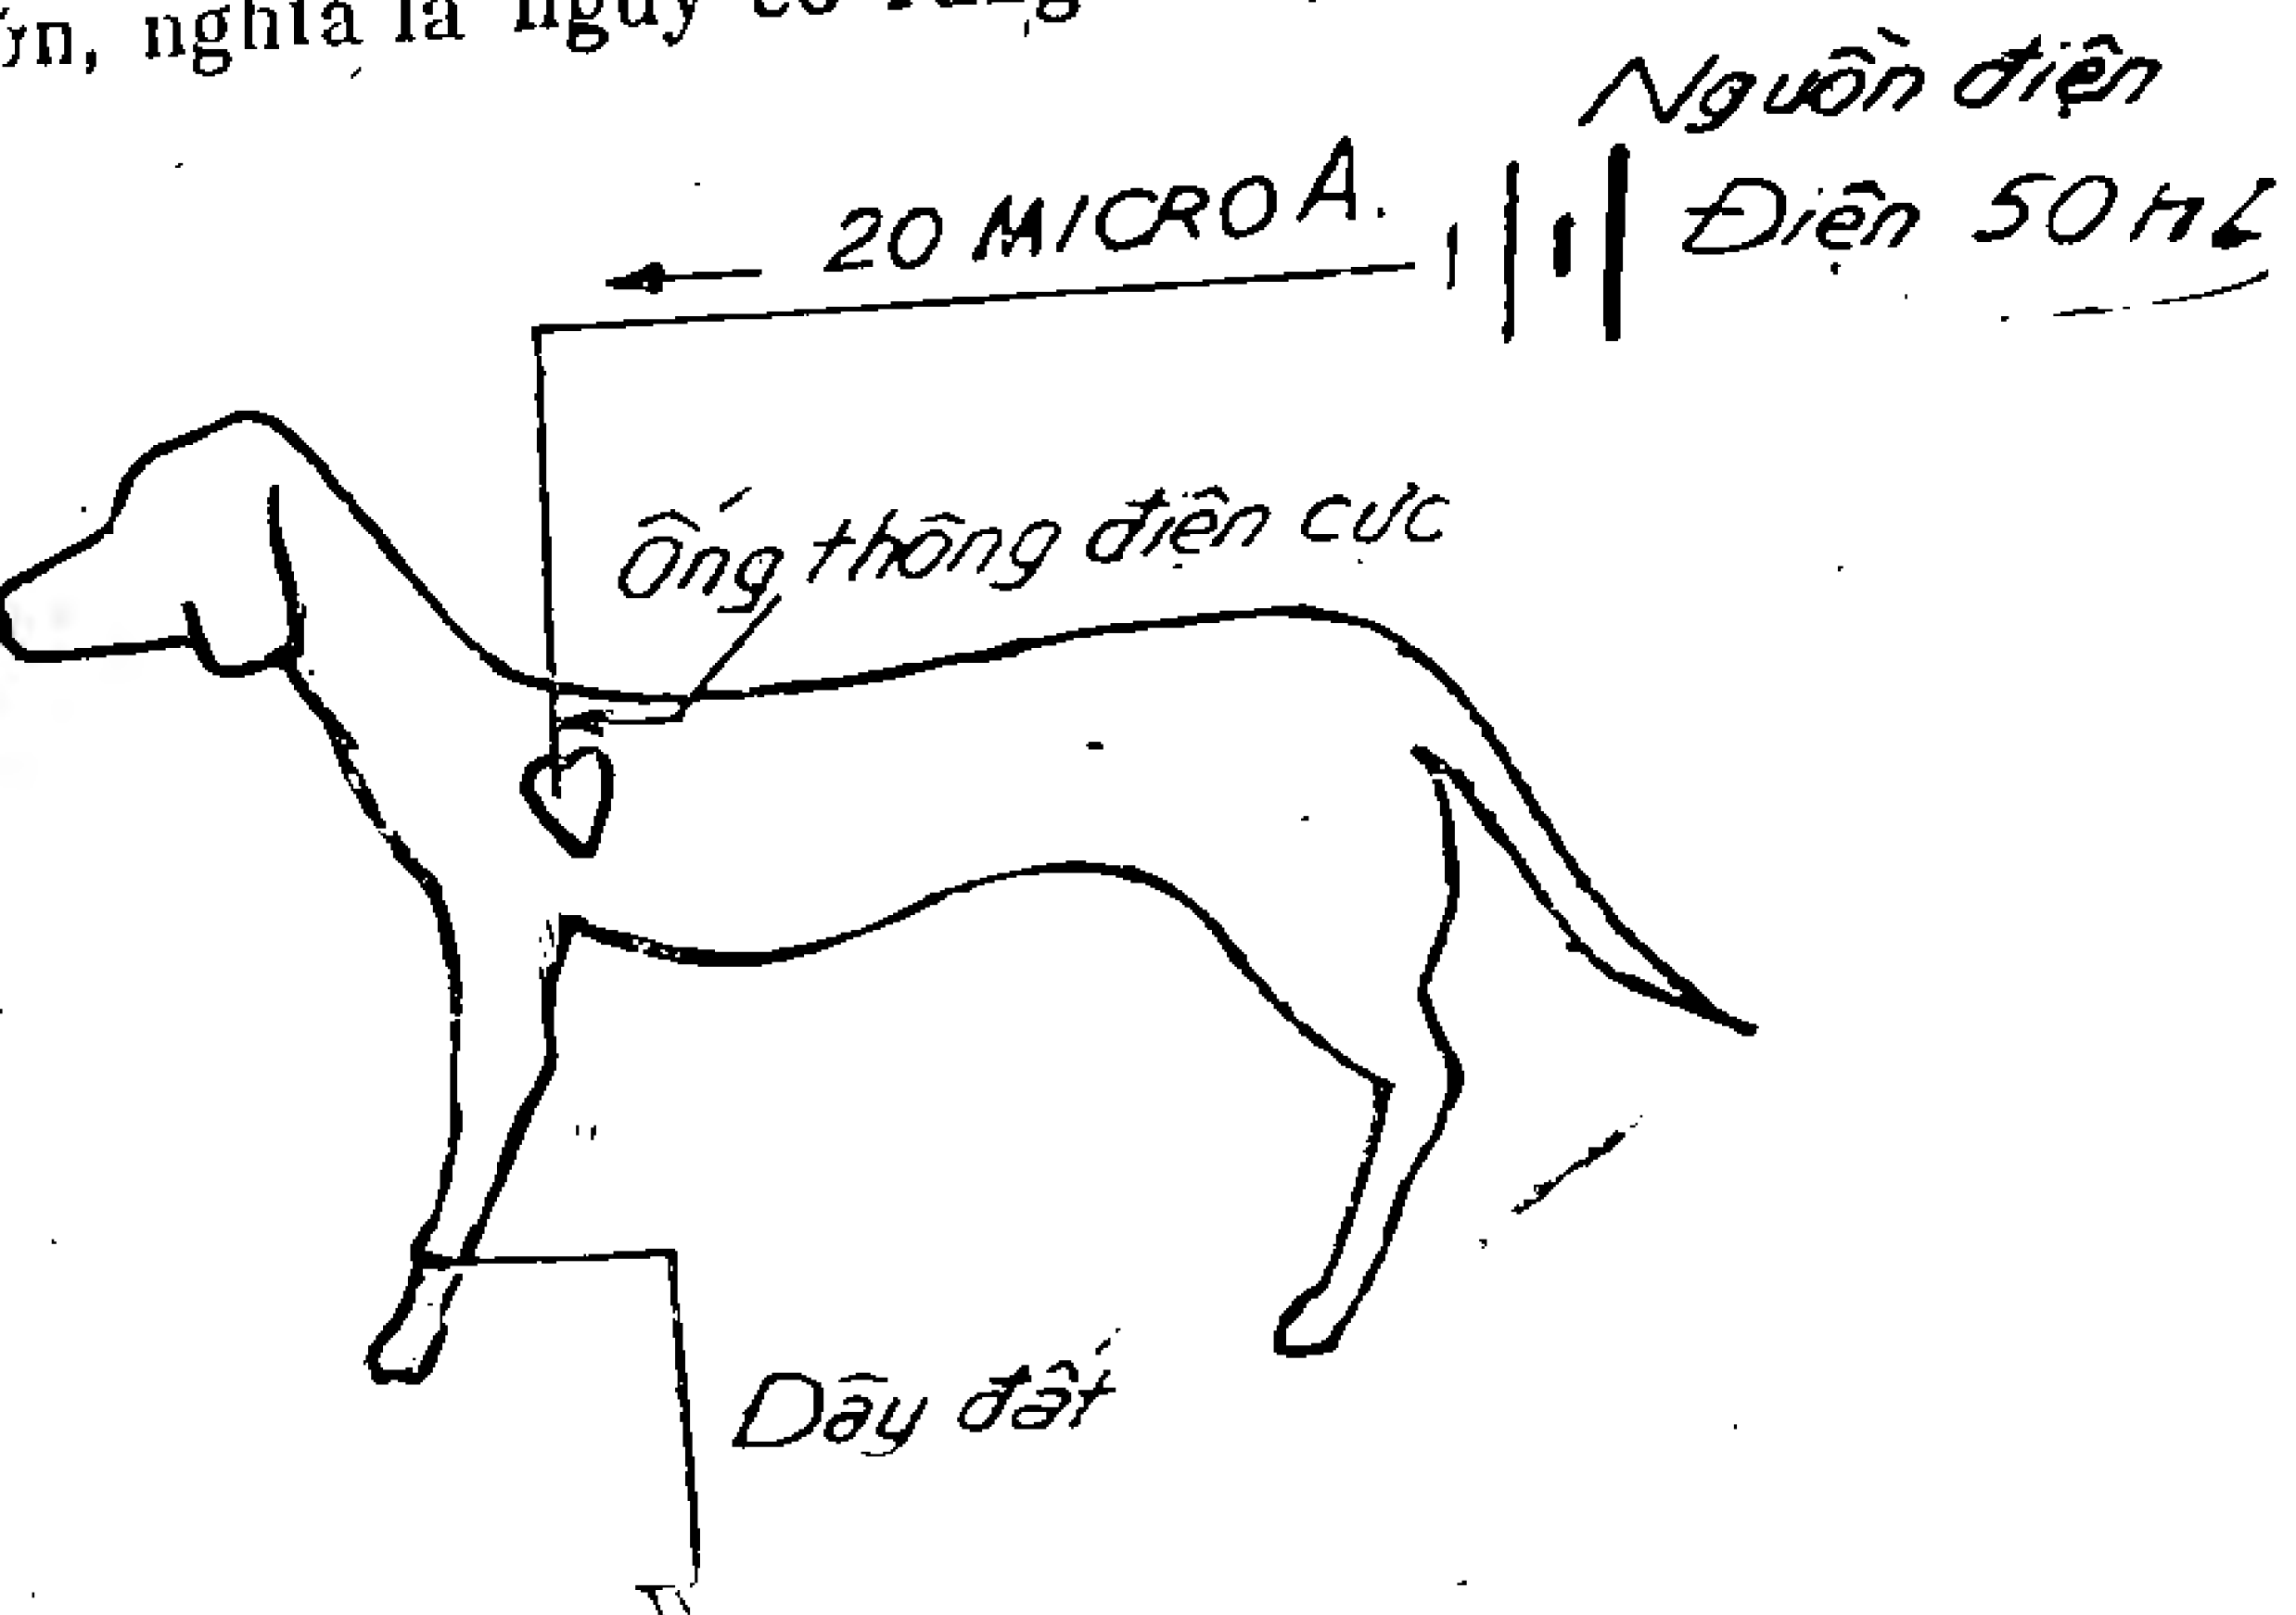 nghĩa là nguy cơ
Nguồn điện
20 MICRO A.
Điện 50
ống thông điện cực
Dây đất